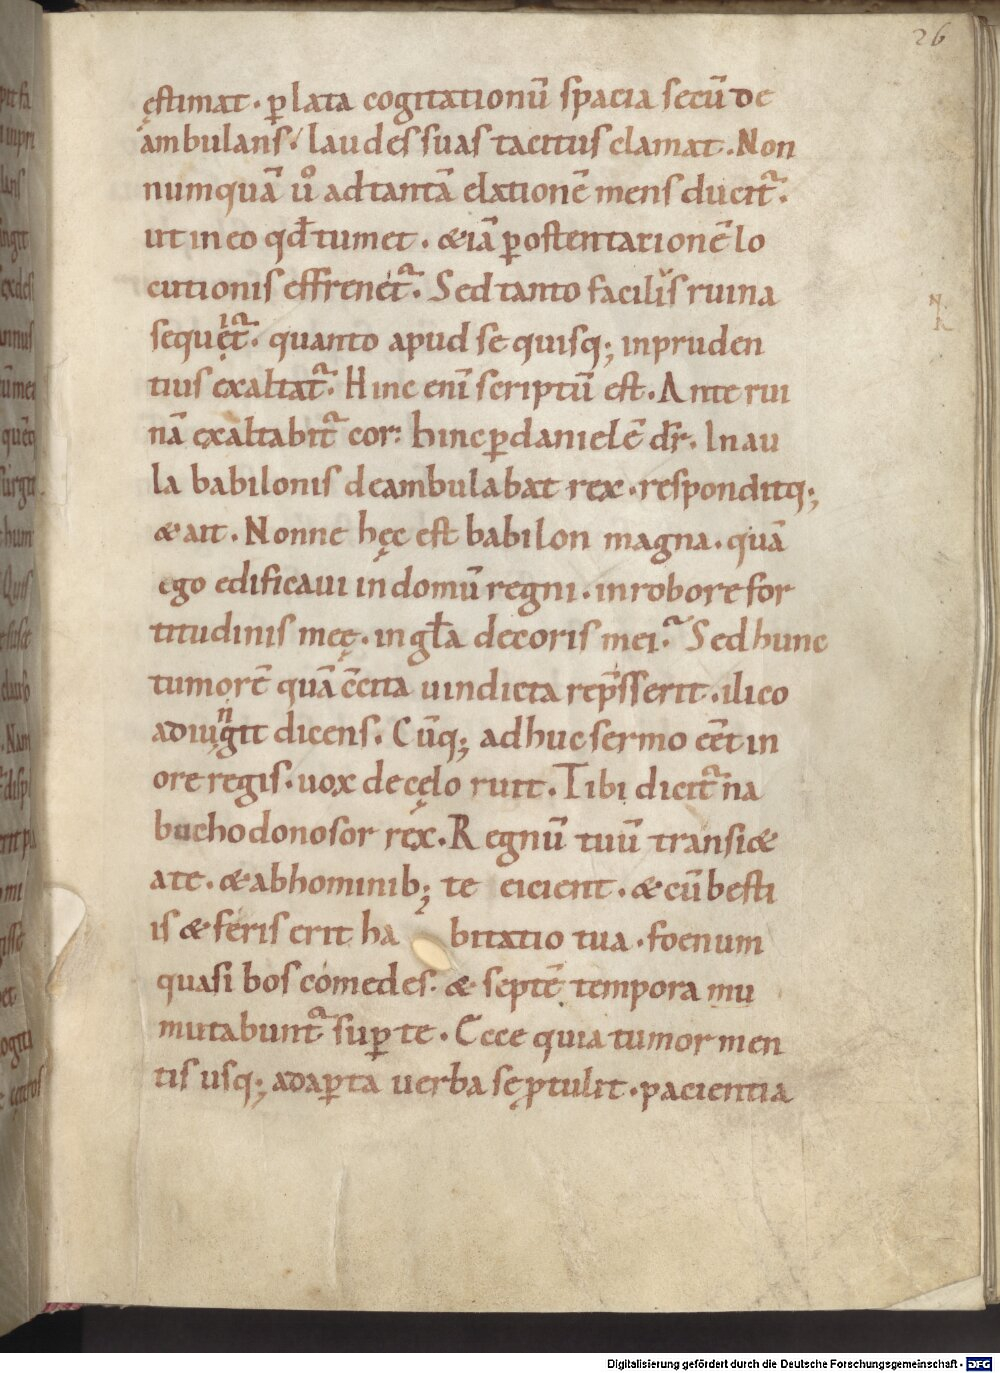 26
ęstimat. ꝑ lata cogitationū spacia secū de
ambulans; laudes suas tacitus clamat. Non
numquā ūo ad tantā elationē mens ducit᷑.
ut in eo qđ tumet. & iā ꝑ ostentationē lo
cutionis effrenet᷑. Sed tanto facili᷒s ruina
sequęt᷑. quanto apud se quisq; inpruden
tius exaltat᷑. Hinc enī scriptū est. Ante rui
nā exaltabit᷑ cor: hinc ꝑ danielē dr̄. In au
la babilonis deambulabat rex. responditq;
& ait. Nonne hęc est babilon magna. quā
ego edificaui in domū regni. in robore for
titudinis meę. in gl̄a decoris mei? Sed hunc
tumorē quā c̄cita uindicta rep̄sserit. ilico
adiungit dicens. Cūq; adhuc sermo eēt in
ore regis. uox de cęlo ruit. Tibi dicit᷑ na
buchodonosor rex. Regnū tuū transi&
a te. & ab hominib; te eicient. & cū besti
is & feris erit ha bitatio tua. foenum
quasi bos comedes. & septē tempora mu
mutabunt᷑ suꝑ te. Ecce quia tumor men
tis usq; ad aꝑta uerba se ꝓtulit. pacientia
Digitalisierung gefördert durch die Deutsche Forschungsgemeinschaft - DFG